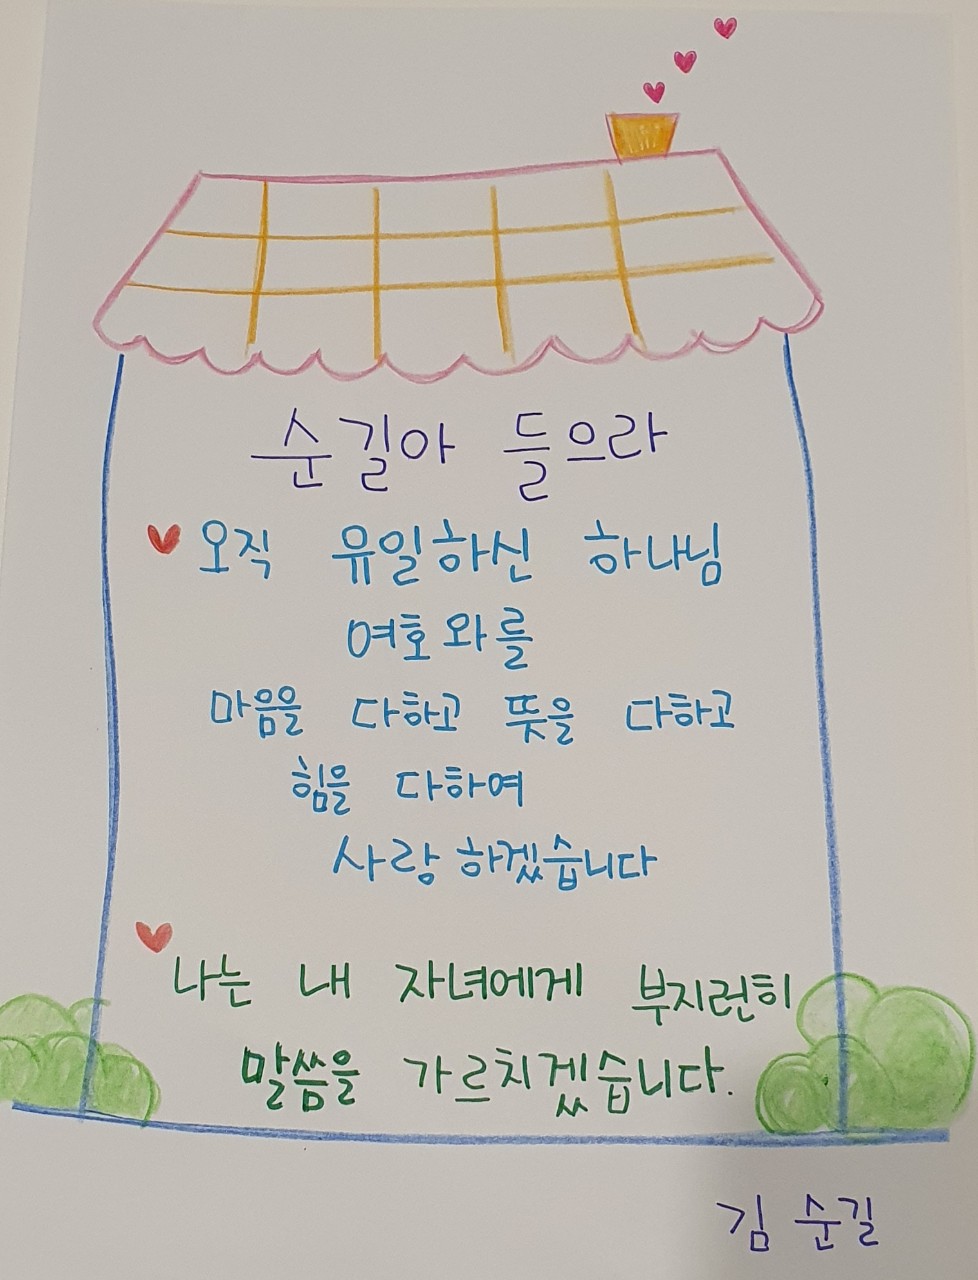 순길아 들으라
오직 유일하신 하나님
여호와를
마음을 다하고 뜻을 다하고
힘을 다하여
사랑하겠습니다
나는 내 자녀에게 부지런히
말씀을 가르치겠습니다.
김 순길